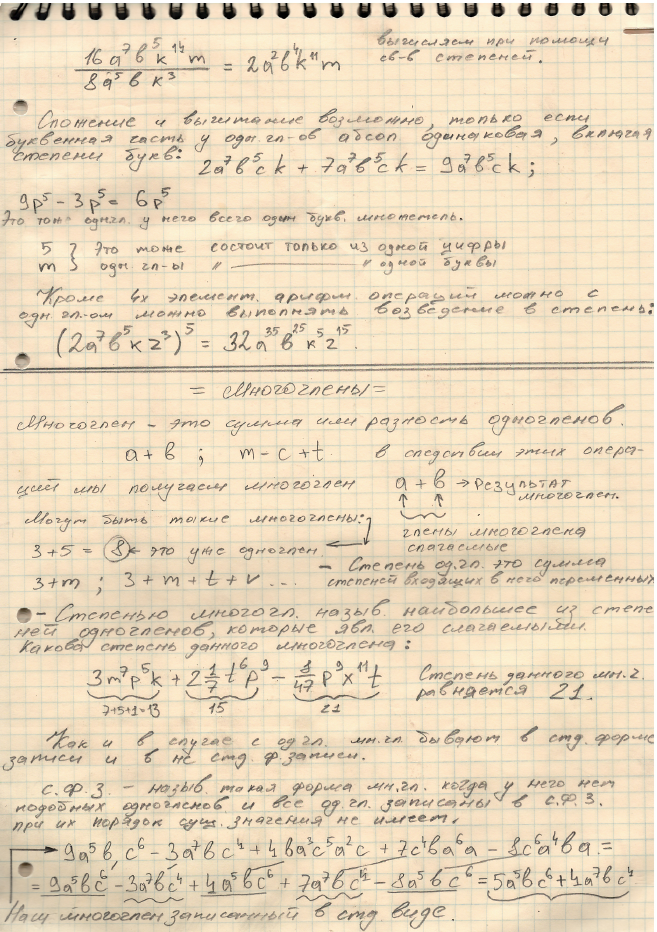 16a⁷b⁵k¹⁴m / 8a⁵bk³ = 2a²b⁴k¹¹m
вычисляем при помощи
св-в степеней.
Сложение и вычитание возможно, только если
буквенная часть у одн.чл-ов абсол. одинаковая, включая
степени букв:
2a⁷b⁵ck + 7a⁷b⁵ck = 9a⁷b⁵ck;
9p⁵ - 3p⁵ = 6p⁵
Это тоже одн.чл. у него всего один букв. множетель.
5 } Это тоже состоит только из одной цифры
m } одн чл-ы " ———— " одной буквы
Кроме 4х элемент. арифм. операций можно с
одн.чл-ом можно выполнять возведение в степень:
(2a⁷b⁵kz³)⁵ = 32a³⁵b²⁵k⁵z¹⁵.
= Многочлены =
Многочлен - это сумма или разность одночленов.
a + b ; m - c + t. в следствии этих опера-
ций мы получаем многочлен
a + b → Результат
многочлен.
Могут быть такие многочлены:
члены многочлена
слагаемые
3 + 5 = 8 ← это уже одночлен.
3+m ; 3 + m + t + v ...
- Степень од.чл. это сумма
степеней входящих в него переменных
- Степенью многочл. назыв. наибольшее из степе
ней одночленов, которые явл. его слагаемыми.
Какова степень данного многочлена:
3m⁷p⁵k + 2 1/7 t⁶p⁹ - 8/47 p⁹x¹¹t
7+5+1=13 15 21
Степень данного мн.ч.
равняется 21.
Как и в случае с од.чл. мн.чл бывают в стд. форме
записи и в не стд. ф. записи.
С.Ф.З. - назыв. такая форма мн.чл. когда у него нет
подобных одночленов и все од.чл. записаны в С.Ф.З.
при их порядок сущ. значения не имеет.
9a⁵b, c⁶ - 3a⁷bc⁴ + 4ba³c⁵a²c + 7c⁴ba⁶a - 8c⁶a⁴ba =
= 9a⁵bc⁶ - 3a⁷bc⁴ + 4a⁵bc⁶ + 7a⁷bc⁴ - 8a⁵bc⁶ = 5a⁵bc⁶ + 4a⁷bc⁴
Наш многочлен записанный в стд виде.